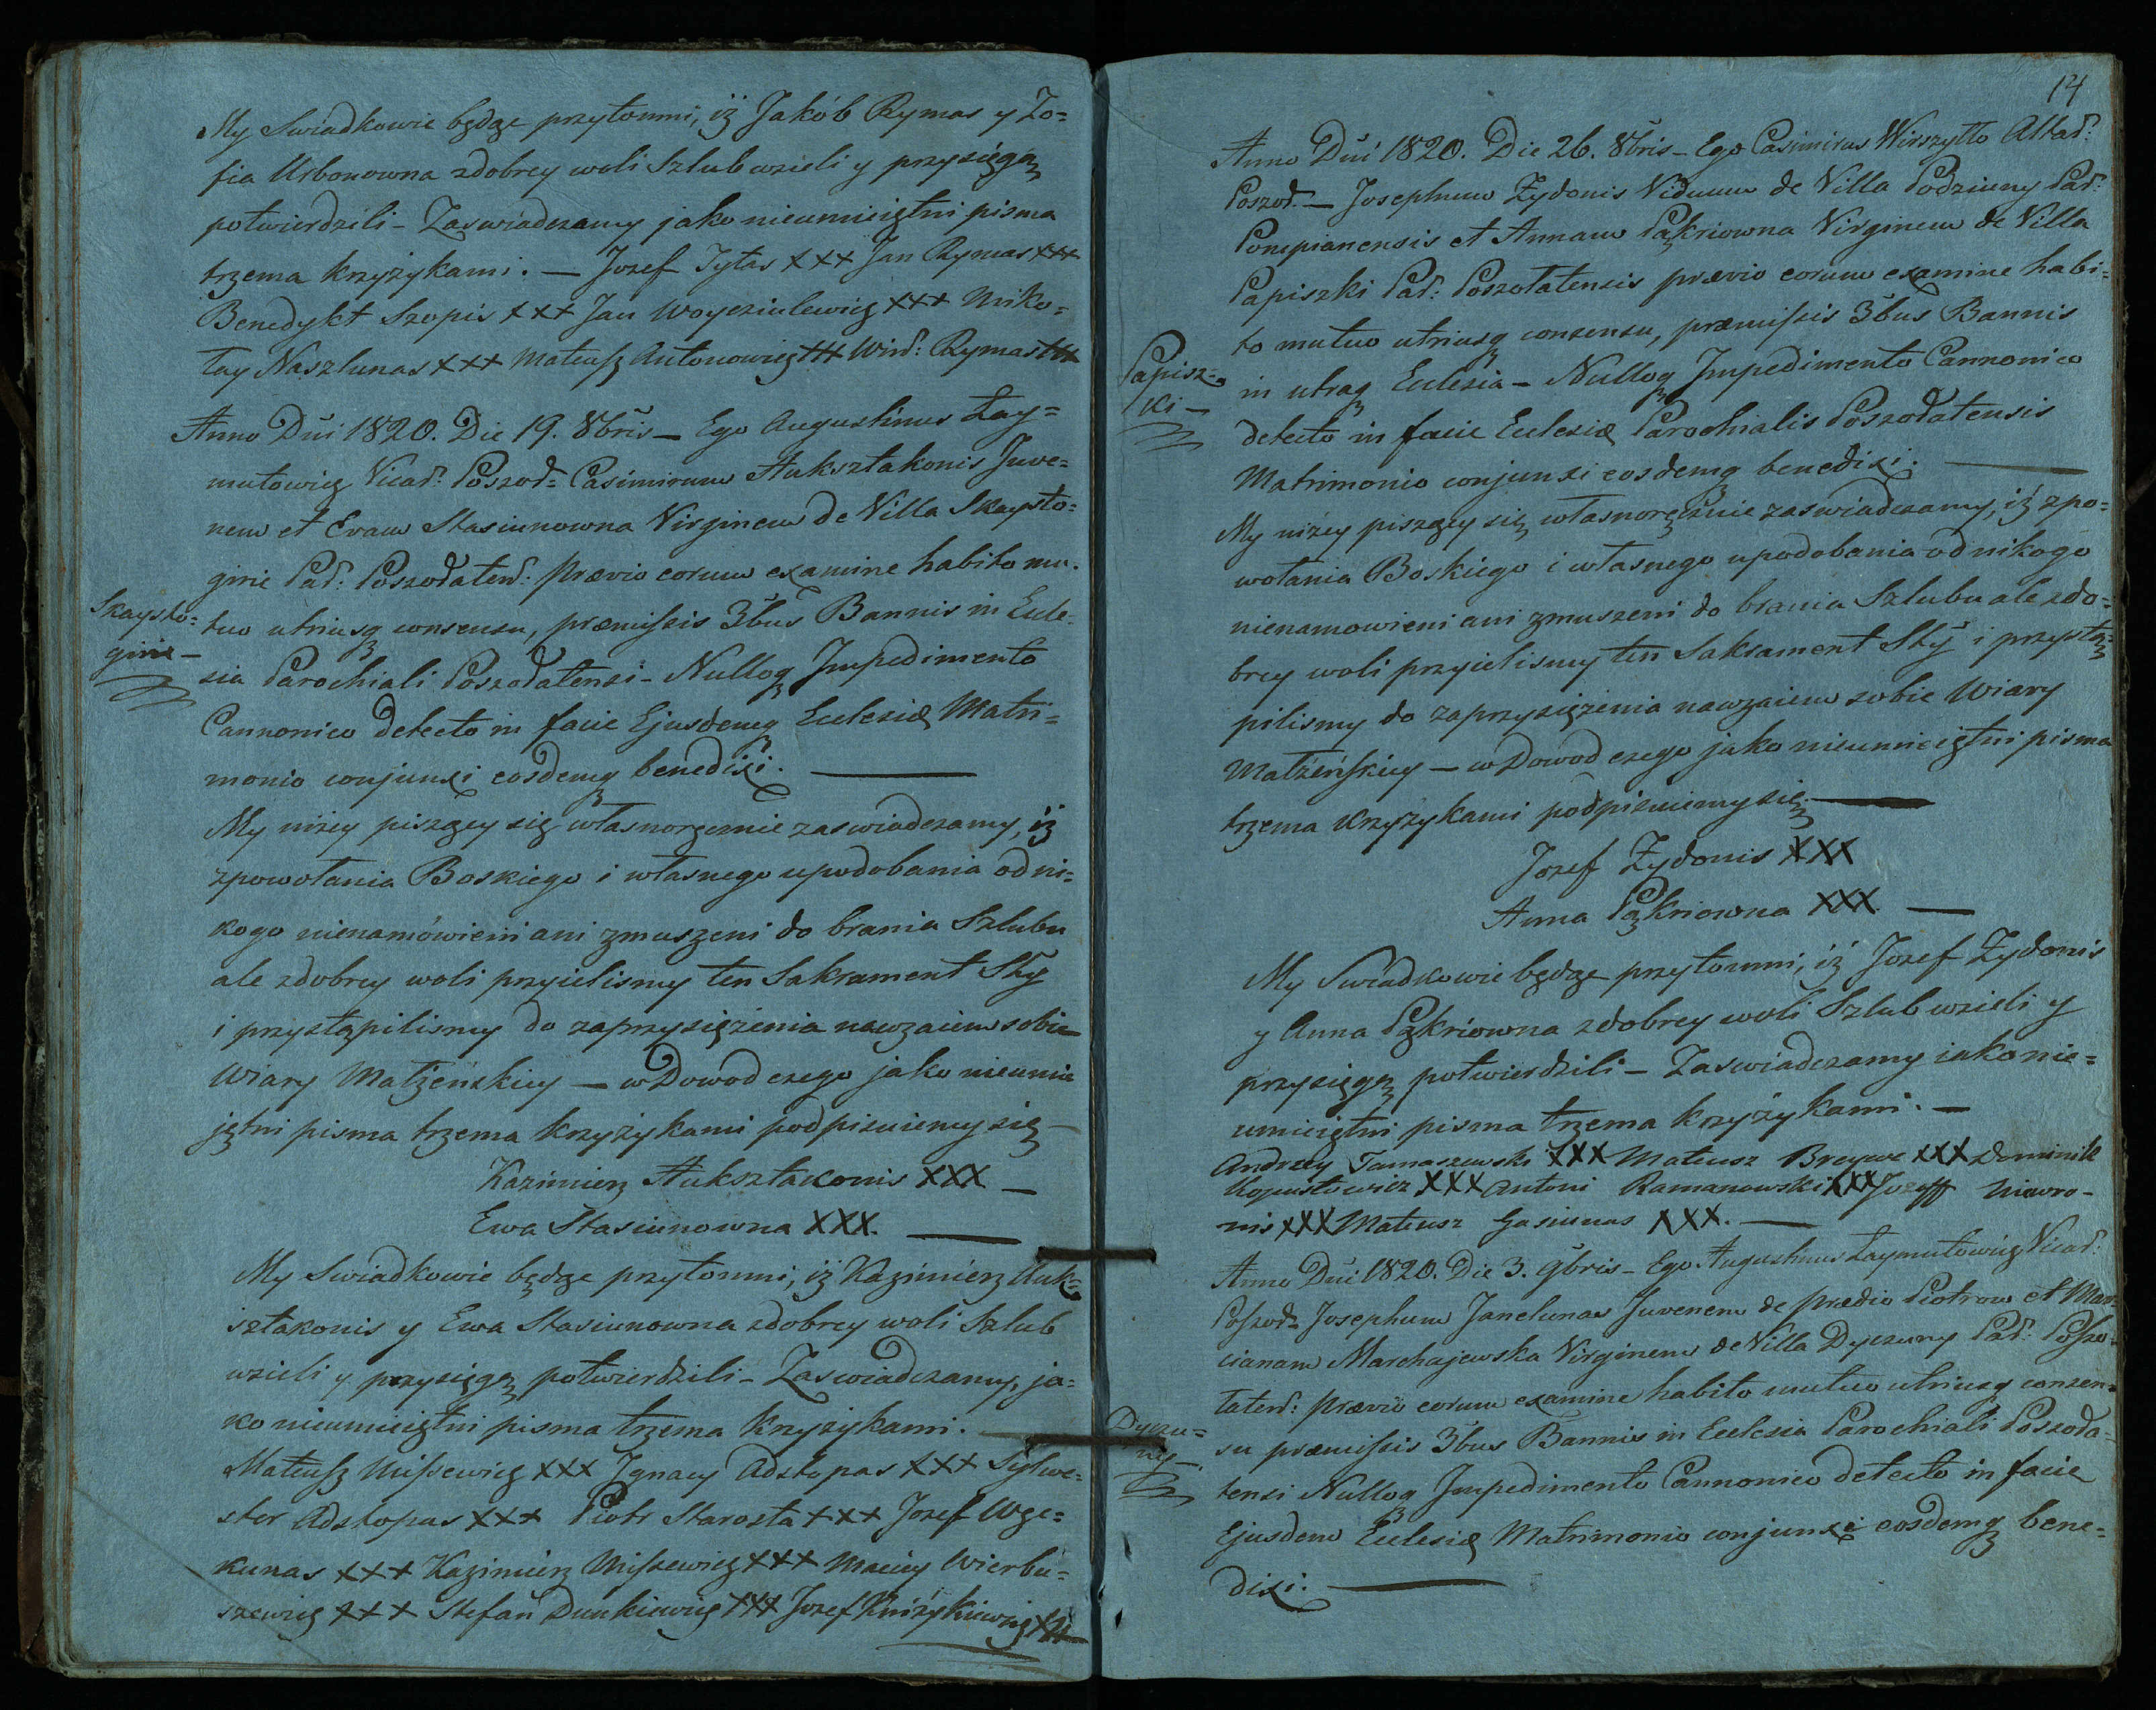 My Swiadkowie będąc przytomni, iż Jakób Rymas y Zo=
fia Urbonowna zdobrey woli Szlub wzieli y przysięgą
potwierdzili - Zaswiadczamy jako nieumieiętni pisma
trzema krzyżykami. — Jozef Tytas +++ Jan Rymas +++
Benedykt Szopis +++ Jan Woyciulewicz +++ Miko=
łay Naszlunas +++ Mateusz Antonowicz +++ Win: Rymas +++
Anno Dni 1820. Die 19. 8bris - Ego Augustinus Łay=
mutowicz Vicar: Poszoł= Casimirum Aukształonis Juve=
nem et Evam Stasiunowna Virginem de Villa Skaysto=
girie Par: Poszołaten: prævio eorum examine habito mu=
Skaysto=
girie -
tuo utriusq consensu, præmissis 3bus Bannis in Eccle=
sia Parochiali Poszołatensi - Nulloq Impedimento
Cannonico detecto in facie Ejusdemq Ecclesiæ Matri=
monio conjunxi eosdemq benedixi. —
My niżey piszący się własnoręcznie zaswiadczamy, iż
zpowołania Boskiego i własnego upodobania od ni=
kogo nienamówieni ani zmuszeni do brania Szlubu
ale zdobrey woli przyielismy ten Sakrament Sty
i przystąpilismy do zaprzysiężenia nawzaiem sobie
Wiary Małżeńskiey — w Dowod czego jako nieumie
jętni pisma trzema krzyżykami podpisuiemy się —
Kazimierz Auksztakonis XXX —
Ewa Stasiunowna XXX. —
My Swiadkowie będąc przytomni, iż Kazimierz Auk=
sztakonis y Ewa Stasiunowna zdobrey woli Szlub
wzieli y przysięgą potwierdzili - Zaswiadczamy, ja=
ko nieumieiętni pisma trzema krzyżykami. —
Mateusz Missewicz XXX Ignacy Adstopas XXX Sylwe=
ster Adstopas XXX Piotr Starosta +++ Jozef Wge=
kunas +++ Kazimierz Missewicz +++ Maciey Wierbu=
szewicz +++ Stefan Dunkiewicz +++ Jozef Kniżykiewicz +++
14
Anno Dni 1820. Die 26. 8bris - Ego Casimirus Wirszyłło Altar:
Poszoł. — Josephum Zydonis Viduum de Villa Podziuny Par:
Pompianensis et Annam Pąkriowna Virginem de Villa
Papiszki Par: Poszołatensis prævio eorum examine habi=
to mutuo utriusq consensu, præmissis 3bus Bannis
Papisz=
ki -
in utraq Ecclesia - Nulloq Impedimento Cannonico
detecto in facie Ecclesiæ Parochialis Poszołatensis
Matrimonio conjunxi eosdemq benedixi. —
My niżey piszący się własnoręcznie zaswiadczamy, iż zpo=
wołania Boskiego i własnego upodobania od nikogo
nienamowieni ani zmuszeni do brania Szlubu ale zdo=
brey woli przyielismy ten Sakrament Sty i przystą=
pilismy do zaprzysiężenia nawzaiem sobie Wiary
Małżeńskiey — w Dowod czego jako nieumieiętni pisma
trzema krzyżykami podpisuiemy się. —
Jozef Zydonis XXX
Anna Pąkriowna XXX —
My Swiadkowie będąc przytomni, iż Jozef Zydonis
y Anna Pąkriowna zdobrey woli Szlub wzieli y
przysięgą potwierdzili - Zaswiadczamy iako nie=
umieiętni pisma trzema krzyżykami. —
Andrzey Tamaszewski XXX Mateusz Breywe XXX Dominik
Kopustowicz XXX Antoni Ramanowski XXX Jozeff Niewro-
nis XXX Mateusz Gasiunas XXX. —
Anno Dni 1820. Die 3. 9bris - Ego Augustinus Łaymutowicz Vicar:
Poszoł= Josephum Janelunas Juvenem de prædio Piotrow et Mar=
cianam Marchajewska Virginem de Villa Dyczuny Par: Poszo=
łaten: prævio eorum examine habito mutuo utriusq consen=
Dyczu=
ny -
su præmissis 3bus Bannis in Ecclesia Parochiali Poszoła=
tensi Nulloq Impedimento Cannonico detecto in facie
Ejusdem Ecclesiæ Matrimonio conjunxi eosdemq bene=
dixi. —